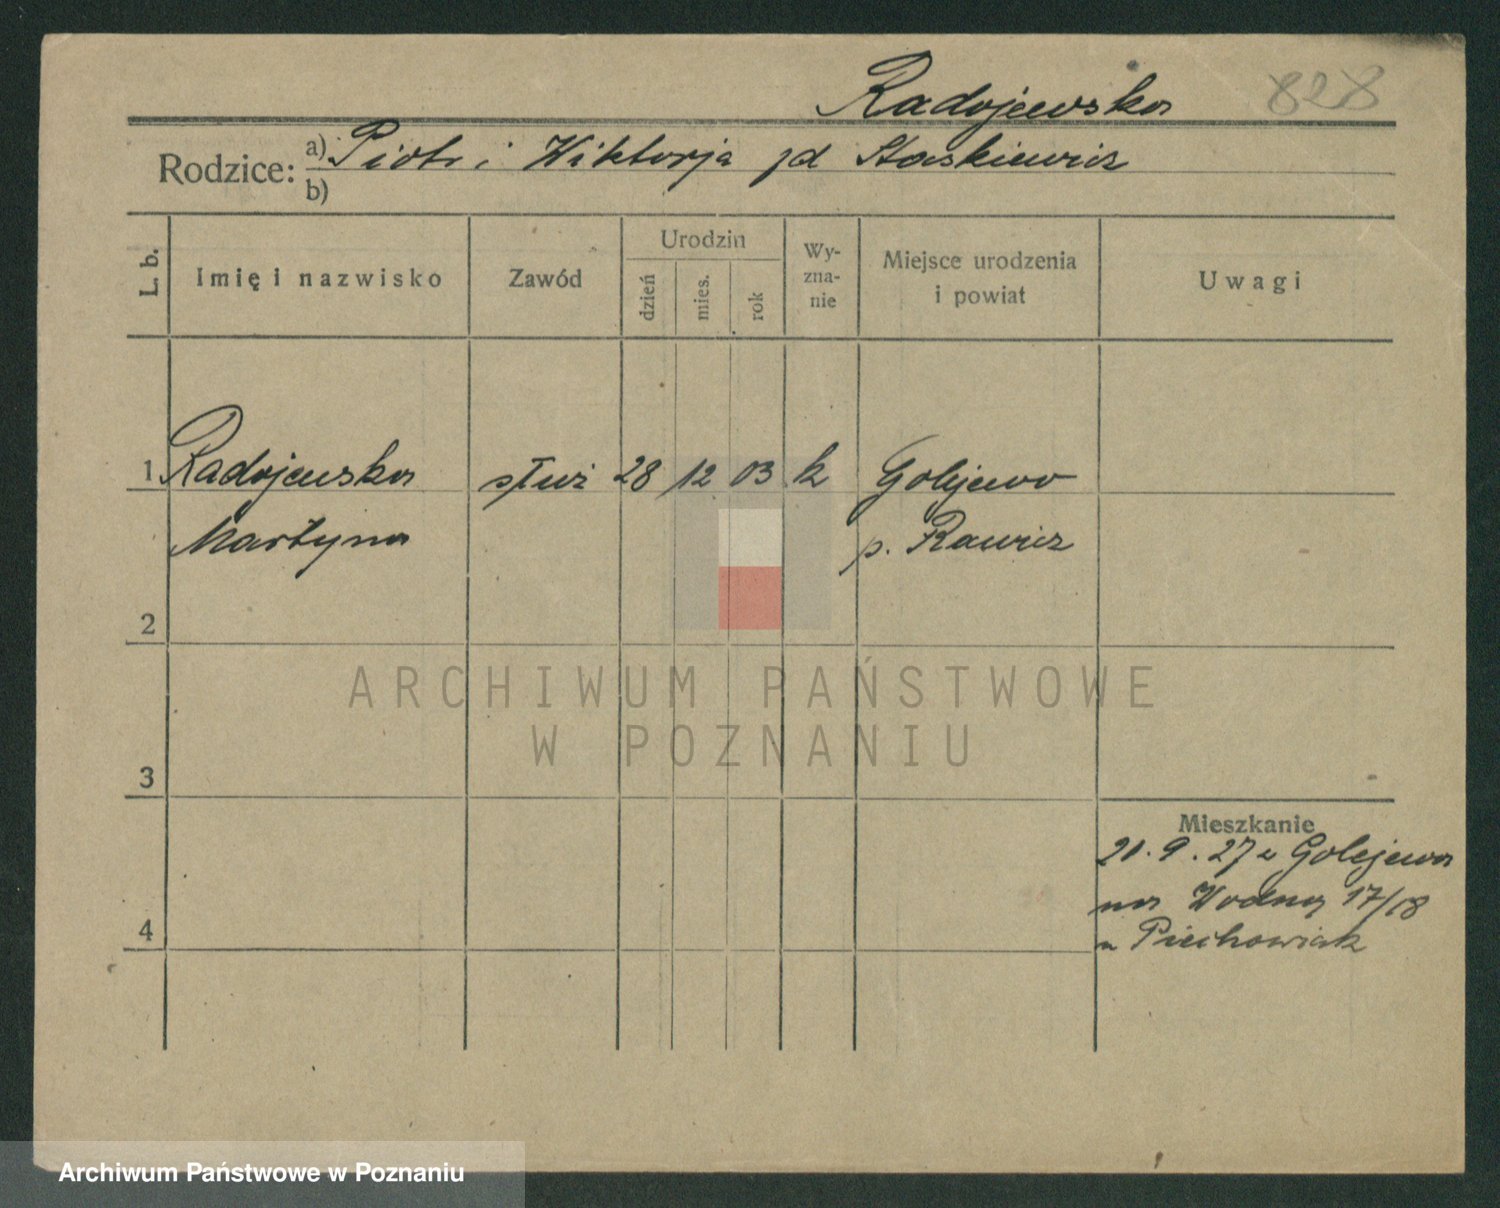 Radojewska 828
Rodzice: a) Piotr i Wiktorja zd Staskiewicz
b)
L. b. Imię i nazwisko Zawód Urodzin dzień mies. rok Wy-zna-nie Miejsce urodzenia i powiat Uwagi
1 Radojewska służ 28 12 03 k Golejewo
Martyna p. Rawicz
2
3
Mieszkanie
20.9.27 z Golejewa
na Wodną 17/18
4 u Piechowiak
ARCHIWUM PAŃSTWOWE
W POZNANIU
Archiwum Państwowe w Poznaniu